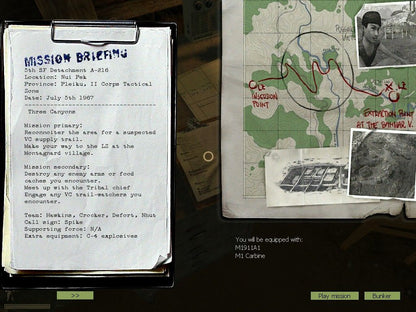 MISSION BRIEFING
5th SF Detachment A-216
Location: Nui Pek
Province: Pleiku, II Corps Tactical
Zone
Date: July 5th 1967
Three Canyons
Mission primary:
Reconnoiter the area for a suspected
VC supply trail.
Make your way to the LZ at the
Montagnard village.
Mission secondary:
Destroy any enemy arms or food
caches you encounter.
Meet up with the Tribal chief
Engage any VC trail-watchers you
encounter.
Team: Hawkins, Crocker, Defort, Nhut
Call sign: Spike
Supporting force: N/A
Extra equipment: C-4 explosives
LZ
INSERSION
POINT
LZ
EXTRACTION POINT
AT THE
You will be equipped with:
M1911A1
M1 Carbine
>>
Play mission
Bunker